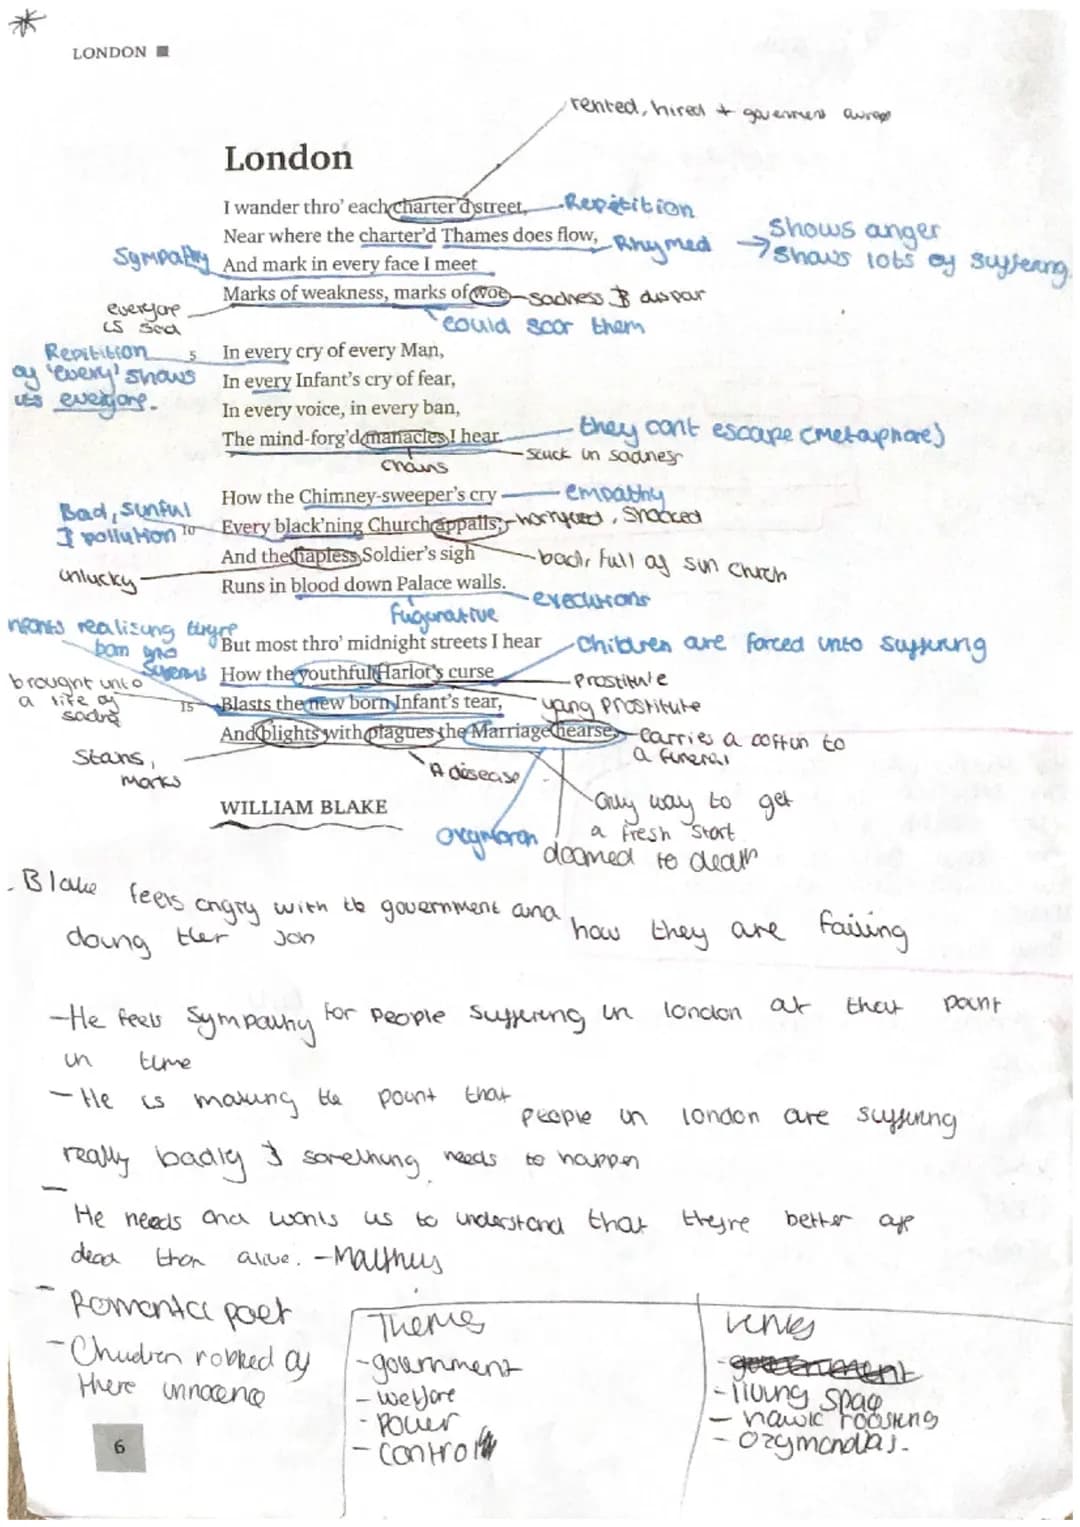 LONDON
rented, hired + goverment
London
I wander thro' each charter'd street,
Repitition
Near where the charter'd Thames does flow,
Rhymed
Shows anger
→ Shows lots of suffering
Sympathy
And mark in every face I meet
Marks of weakness, marks of woe
sadness & dispar
everyone is sad
could scar them
Repitition of 'every' shows its everyone.
5
In every cry of every Man,
In every Infant's cry of fear,
In every voice, in every ban,
The mind-forg'd manacles I hear.
they cant escape (Metaphore)
Stuck in sadness
chains
How the Chimney-sweeper's cry
empathy
Bad, sinful & pollution
10
Every black'ning Church appalls;
horryfied, Shocked
And the hapless Soldier's sigh
bad, full of sin church
unlucky
Runs in blood down Palace walls.
executions
Figurative
But most thro' midnight streets I hear
Children are forced into suffering
How the youthful Harlot's curse
Prostitute
brought into a life of
15
Blasts the new born Infant's tear,
yong prostitute
And blights with plagues the Marriage hearse.
Carries a coffin to a funeral
Stains, Marks
A disease
Only way to get a fresh start
WILLIAM BLAKE
Oxymoron
doomed to death
- Blake feels angry with the government and how they are failing
doing their Job
- He feels sympathy for people suffering in london at that point
in time
- He is making the point that people in london are suffering
really badly & something needs to happen
- He needs and wants us to understand that theyre better off
dead than alive. - Malthus
- Romantic poet
- Children robbed of
there innocence
Themes
- government
- welfare
- Power
- control
Links
- living space
- hawk roosting
- Ozymandias.
6